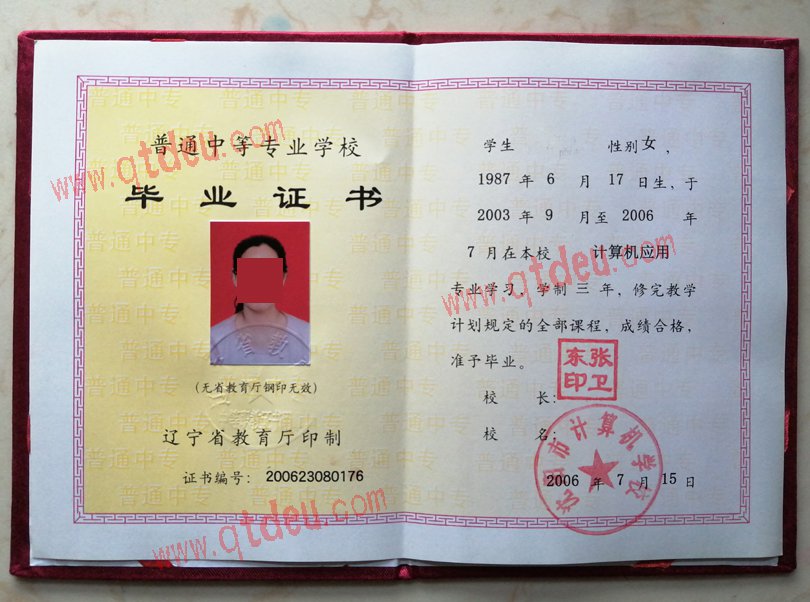 普通中等专业学校
毕业证书
(无省教育厅钢印无效)
辽宁省教育厅印制
证书编号：200623080176
学生 性别女，
1987 年 6 月 17 日生，于
2003 年 9 月至 2006 年
7 月在本校 计算机应用
专业学习 学制 三 年，修完教学
计划规定的全部课程，成绩合格，
准予毕业。
张卫东印
校 长：
校 名：
沈阳市计算机学校
2006 年 7 月 15 日
www.qtdeu.com
www.qtdeu.com
www.qtdeu.com
普通中专